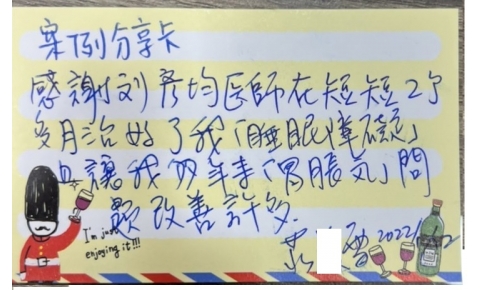 案例分享卡
感謝刘彥均医師在短短2个
多月治好了我「睡眠障礙」
且讓我多年来「胃脹気」問
題改善許多
I'm just
enjoying it!!!
2022/